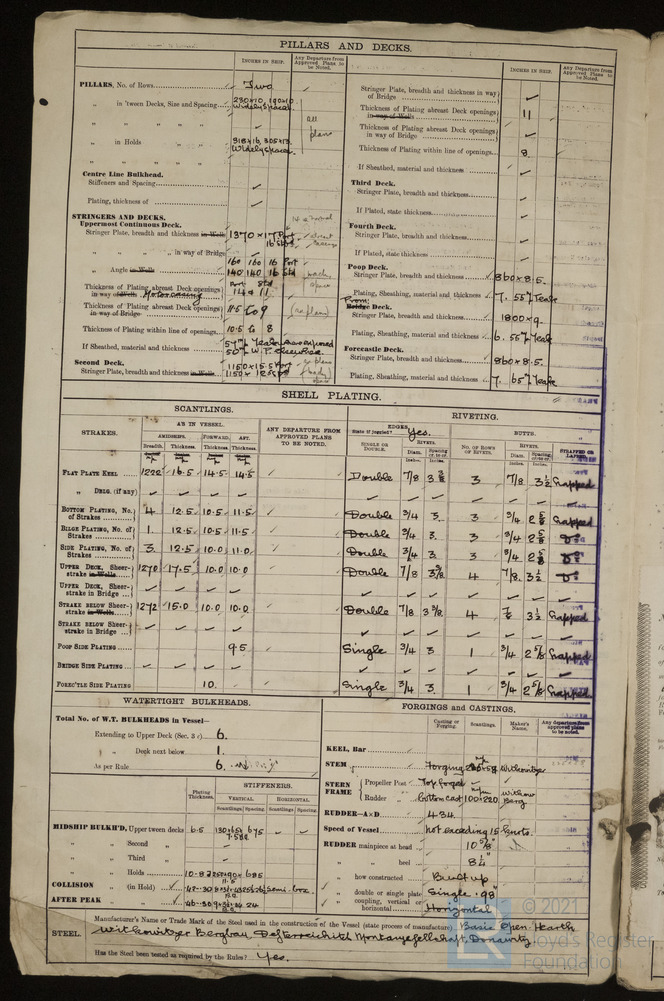 PILLARS AND DECKS.
INCHES IN SHIP.
Any Departure from Approved Plans to be Noted.
PILLARS, No. of Rows Two
„ in 'tween Decks, Size and Spacing 230×10, 190×10 Widely spaced
„ „ „ „
all plans
„ in Holds „ „ 318×16, 305×13 Widely spaced
„ „ „ „
Centre Line Bulkhead.
Stiffeners and Spacing
Plating, thickness of
STRINGERS AND DECKS.
Uppermost Continuous Deck.
Stringer Plate, breadth and thickness in Wells 1370 × 17 Port
16 Stbd
„ „ „ in way of Bridge
„ Angle in Wells 160 160 16 Port
140 140 16 Std
Thickness of Plating abreast Deck openings in way of Wells Motor casing Port Std
14 & 11
Thickness of Plating abreast Deck openings in way of Bridge 11.5 to 9
Thickness of Plating within line of openings 10.5 to 8
If Sheathed, material and thickness
Second Deck.
Stringer Plate, breadth and thickness in Wells 1150 × 15.5 Port
INCHES IN SHIP.
Any Departure from Approved Plans to be Noted.
Stringer Plate, breadth and thickness in way of Bridge
Thickness of Plating abreast Deck openings in way of Wells 11
Thickness of Plating abreast Deck openings in way of Bridge
Thickness of Plating within line of openings 8.
If Sheathed, material and thickness
Third Deck.
Stringer Plate, breadth and thickness
If Plated, state thickness
Fourth Deck.
Stringer Plate, breadth and thickness
If Plated, state thickness
Poop Deck.
Stringer Plate, breadth and thickness 860×8.5.
Plating, Sheathing, material and thickness 7. 55 Teak
Prom: Bridge Deck.
Stringer Plate, breadth and thickness 1800×9.
Plating, Sheathing, material and thickness 6. 55 Teak
Forecastle Deck.
Stringer Plate, breadth and thickness 860×8.5.
Plating, Sheathing, material and thickness 7. 65 Teak
SHELL PLATING.
SCANTLINGS.
RIVETING.
STRAKES.
AS IN VESSEL.
AMIDSHIPS. FORWARD. AFT.
Breadth. Thickness. Thickness. Thickness.
ANY DEPARTURE FROM APPROVED PLANS TO BE NOTED.
EDGES.
State if joggled? Yes.
SINGLE OR DOUBLE.
RIVETS.
Diam. Spacing cr. to cr.
Inches. Inches.
BUTTS.
NO. OF ROWS OF RIVETS.
RIVETS.
Diam. Spacing cr. to cr.
Inches. Inches.
STRAPPED OR LAPPED.
FLAT PLATE KEEL 1222 16.5 14.5 14.5 Double 7/8 3 3/8 3 7/8 3 1/2 Lapped
„ DBLG. (if any)
BOTTOM PLATING, No. of Strakes 4 12.5 10.5 11.5 Double 3/4 3. 3 3/4 2 5/8 Lapped
BILGE PLATING, No. of Strakes 1. 12.5 10.5 11.5 Double 3/4 3. 3 3/4 2 5/8 Do
SIDE PLATING, No. of Strakes 3. 12.5 10.0 11.0 Double 3/4 3 3 3/4 2 5/8 Do
UPPER DECK, Sheerstrake in Wells 1270 17.5 10.0 10.0 Double 7/8 3 3/8 4 7/8. 3 1/2 Do
UPPER DECK, Sheerstrake in Bridge
STRAKE BELOW Sheerstrake in Wells 1272 15.0 10.0 10.0 Double 7/8 3 3/8. 4 7/8 3 1/2 Lapped
STRAKE BELOW Sheerstrake in Bridge
POOP SIDE PLATING 9.5 Single 3/4 3 1 3/4 2 5/8 Lapped
BRIDGE SIDE PLATING
FOREC'TLE SIDE PLATING 10. Single 3/4 3. 1 3/4 2 5/8 Lapped
WATERTIGHT BULKHEADS.
Total No. of W.T. BULKHEADS in Vessel—
Extending to Upper Deck (Sec. 3 c) 6.
„ „ Deck next below 1.
As per Rule 6.
Plating Thickness.
STIFFENERS.
VERTICAL. HORIZONTAL.
Scantlings Spacing. Scantlings Spacing.
MIDSHIP BULKH'D, Upper tween decks 6.5 675
„ „ Second „
„ „ Third „
„ „ Holds 685
COLLISION „ (in Hold)
AFTER PEAK „ „
FORGINGS and CASTINGS.
Casting or Forging.
Scantlings.
Maker's Name.
Any departure from approved plans to be noted.
KEEL, Bar
STEM Forging Witkowitzer
STERN FRAME
Propeller Post Top forged
Rudder „ bottom cast 100×220 Witkow Berg
RUDDER—A×D 434
Speed of Vessel Not exceeding 15 Knots.
RUDDER mainpiece at head 10 5/8"
„ „ heel 8 1/4"
„ how constructed Built up
„ double or single plate Single .98"
„ coupling, vertical or horizontal Horizontal
STEEL.
Manufacturer's Name or Trade Mark of the Steel used in the construction of the Vessel (state process of manufacture) Basic Open Hearth
Witkowitzer Bergbau, Oesterreichisch Montangesellschaft, Donawitz
Has the Steel been tested as required by the Rules? Yes.
© 2021
Lloyd's Register
Foundation